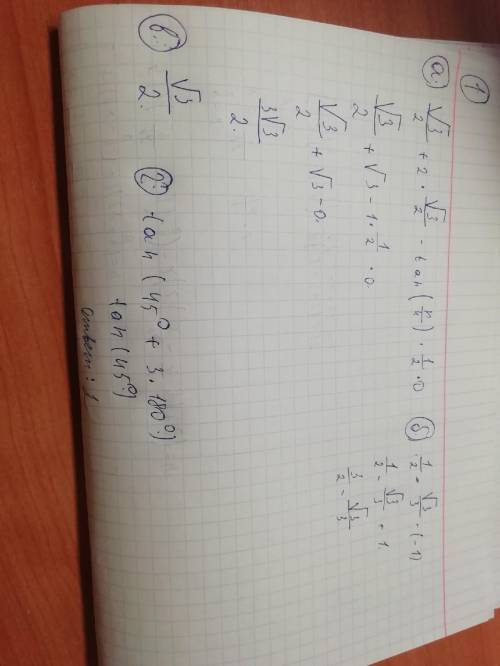 1
а. √3/2 + 2 · √3/2 - tan(π/4) · 1/2 · 0
√3/2 + √3 - 1 · 1/2 · 0
√3/2 + √3 - 0
3√3/2
б. 1/2 - √3/3 - (-1)
1/2 - √3/3 + 1
3/2 - √3/3
в. √3/2
г. tan(45° + 3 · 180°)
tan(45°)
ответ: 1